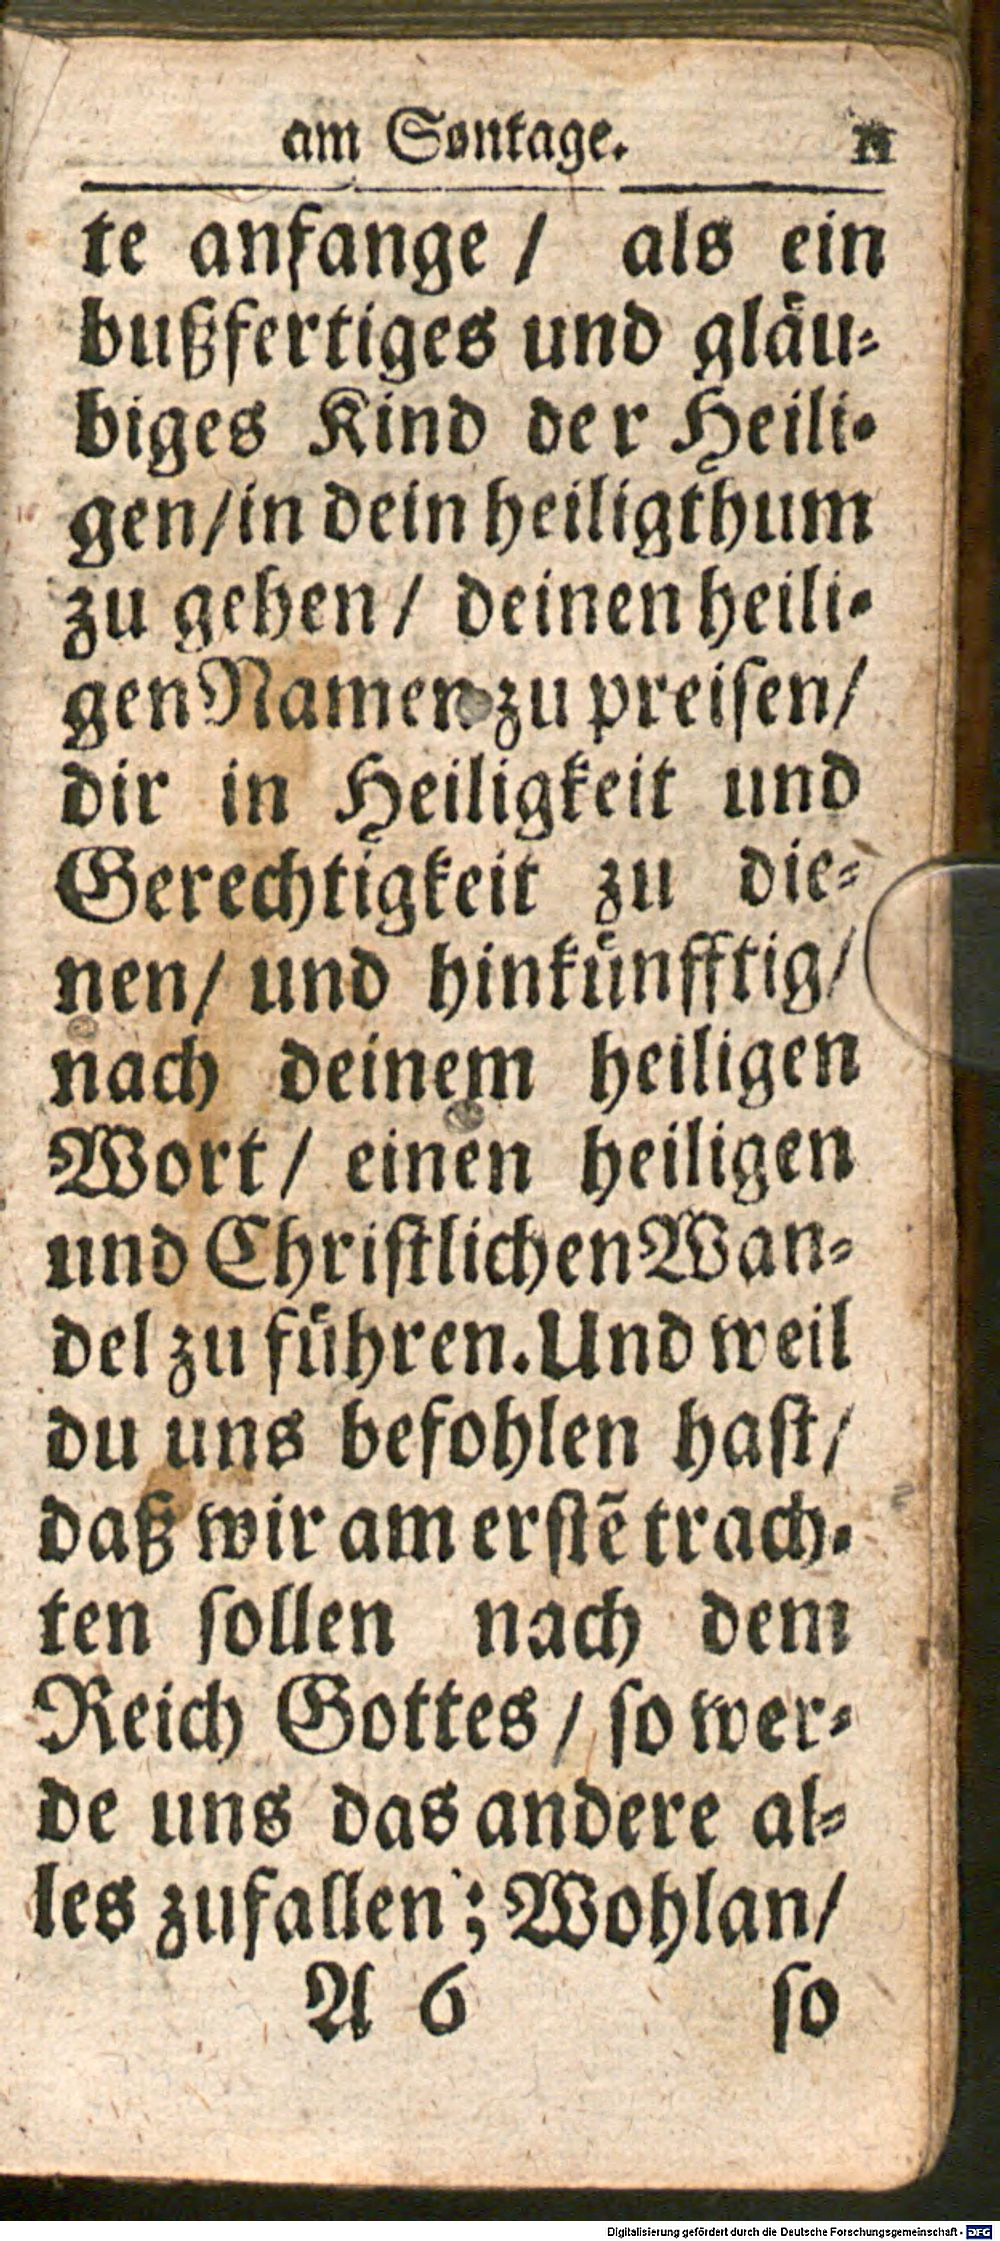 am Sontage. 11
te anfange / als ein
bußfertiges und gläu-
biges Kind der Heili-
gen/in dein heiligthum
zu gehen/ deinen heili-
gen Namen zu preisen/
dir in Heiligkeit und
Gerechtigkeit zu die-
nen/ und hinkünfftig/
nach deinem heiligen
Wort/ einen heiligen
und Christlichen Wan-
del zu führen. Und weil
du uns befohlen hast/
daß wir am erstē trach-
ten sollen nach dem
Reich Gottes/ so wer-
de uns das andere al-
les zufallen; Wohlan/
A 6 so
Digitalisierung gefördert durch die Deutsche Forschungsgemeinschaft - DFG